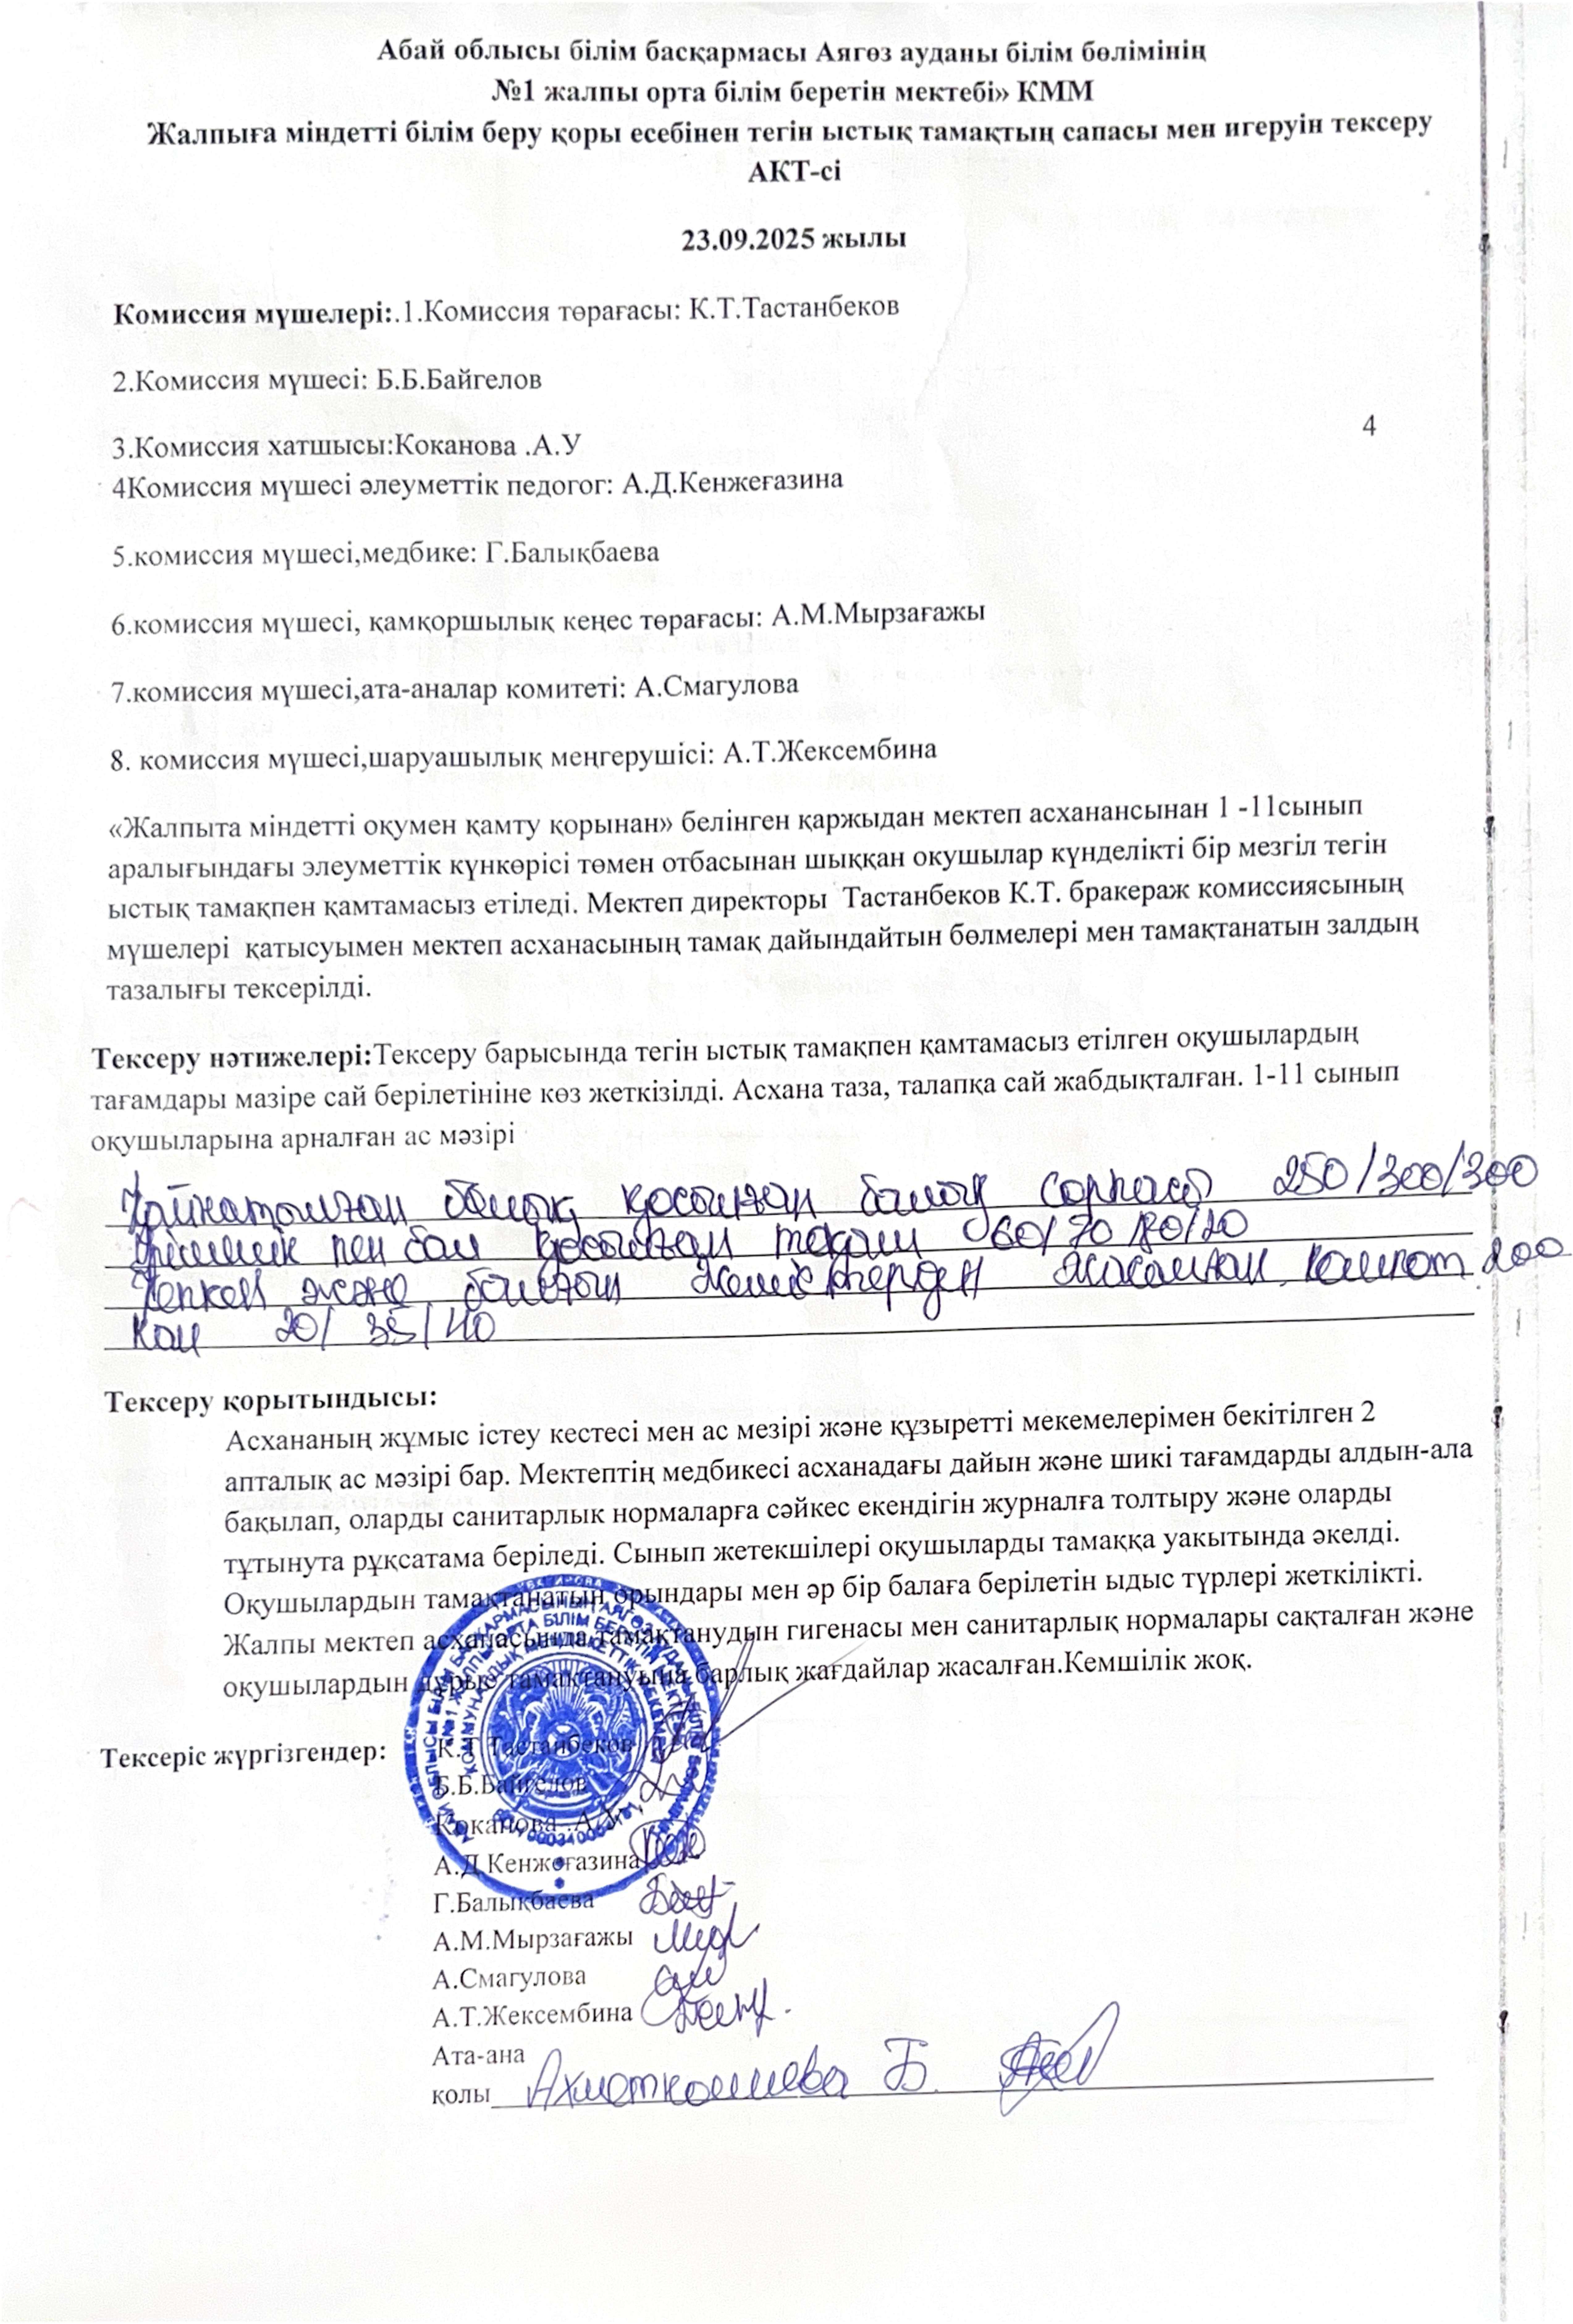 Абай облысы білім басқармасы Аягөз ауданы білім бөлімінің
№1 жалпы орта білім беретін мектебі» КММ
Жалпыға міндетті білім беру қоры есебінен тегін ыстық тамақтың сапасы мен игеруін тексеру
АКТ-сі
23.09.2025 жылы
Комиссия мүшелері:.1.Комиссия төрағасы: К.Т.Тастанбеков
2.Комиссия мүшесі: Б.Б.Байгелов
4
3.Комиссия хатшысы:Коканова .А.У
4Комиссия мүшесі әлеуметтік педогог: А.Д.Кенжеғазина
5.комиссия мүшесі,медбике: Г.Балықбаева
6.комиссия мүшесі, қамқоршылық кеңес төрағасы: А.М.Мырзағажы
7.комиссия мүшесі,ата-аналар комитеті: А.Смагулова
8. комиссия мүшесі,шаруашылық меңгерушісі: А.Т.Жексембина
«Жалпыта міндетті оқумен қамту қорынан» белінген қаржыдан мектеп асханансынан 1 -11сынып
аралығындағы элеуметтік күнкөрісі төмен отбасынан шыққан окушылар күнделікті бір мезгіл тегін
ыстық тамақпен қамтамасыз етіледі. Мектеп директоры Тастанбеков К.Т. бракераж комиссиясының
мүшелері қатысуымен мектеп асханасының тамақ дайындайтын бөлмелері мен тамақтанатын залдың
тазалығы тексерілді.
Тексеру нәтижелері:Тексеру барысында тегін ыстық тамақпен қамтамасыз етілген оқушылардың
тағамдары мазіре сай берілетініне көз жеткізілді. Асхана таза, талапқа сай жабдықталған. 1-11 сынып
оқушыларына арналған ас мәзірі
Қайнатылған балық қосылған балық сорпасы 250/300/300
Ірімшік пен бал қосылған тоқаш 60/70/80/20
Кепкен және балғын жемістерден жасалған компот 200
Нан 20/ 35/40
Тексеру қорытындысы:
Асхананың жұмыс істеу кестесі мен ас мезірі және құзыретті мекемелерімен бекітілген 2
апталық ас мәзірі бар. Мектептің медбикесі асханадағы дайын және шикі тағамдарды алдын-ала
бақылап, оларды санитарлык нормаларға сәйкес екендігін журналға толтыру және оларды
тұтынута рұқсатама беріледі. Сынып жетекшілері оқушыларды тамаққа уакытында әкелді.
Оқушылардын тамақтанатын орындары мен әр бір балаға берілетін ыдыс түрлері жеткілікті.
Жалпы мектеп асханасында тамақтанудын гигенасы мен санитарлық нормалары сақталған және
оқушылардын дұрыс тамақтануына барлық жағдайлар жасалған.Кемшілік жоқ.
Тексеріс жүргізгендер: К.Т.Тастанбеков
Б.Б.Байгелов
Коканова .А.У
А.Д.Кенжеғазина
Г.Балықбаева
А.М.Мырзағажы
А.Смагулова
А.Т.Жексембина
Ата-ана
қолы Ахметкалиева Б.